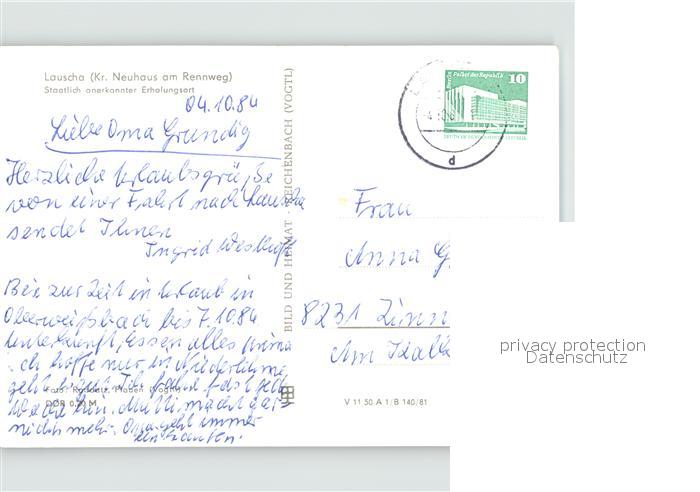 Lauscha (Kr. Neuhaus am Rennweg)
Staatlich anerkannter Erholungsort
04.10.84
Liebe Oma Grundig
Herzliche Urlaubsgrüße
von einer Fahrt nach Lauscha
sendet Ihnen
Ingrid
Bin zur Zeit in Urlaub in
Oberweißbach bis 7.10.84
Unterkunft, Essen alles prima
ich hoffe nur, in Niederlihme
geht es gut. Ich fahre fast jede
Woche hin. Mutti macht gar
nichts mehr. Oma geht immer
einkaufen.
DDR 0,20 M
BILD UND HEIMAT · REICHENBACH (VOGTL)
Berlin, Palast der Republik
10
d
Frau
Anna G.
8231 Zinn
Am Kalk
V 11 50 A 1/B 140/81
privacy protection
Datenschutz